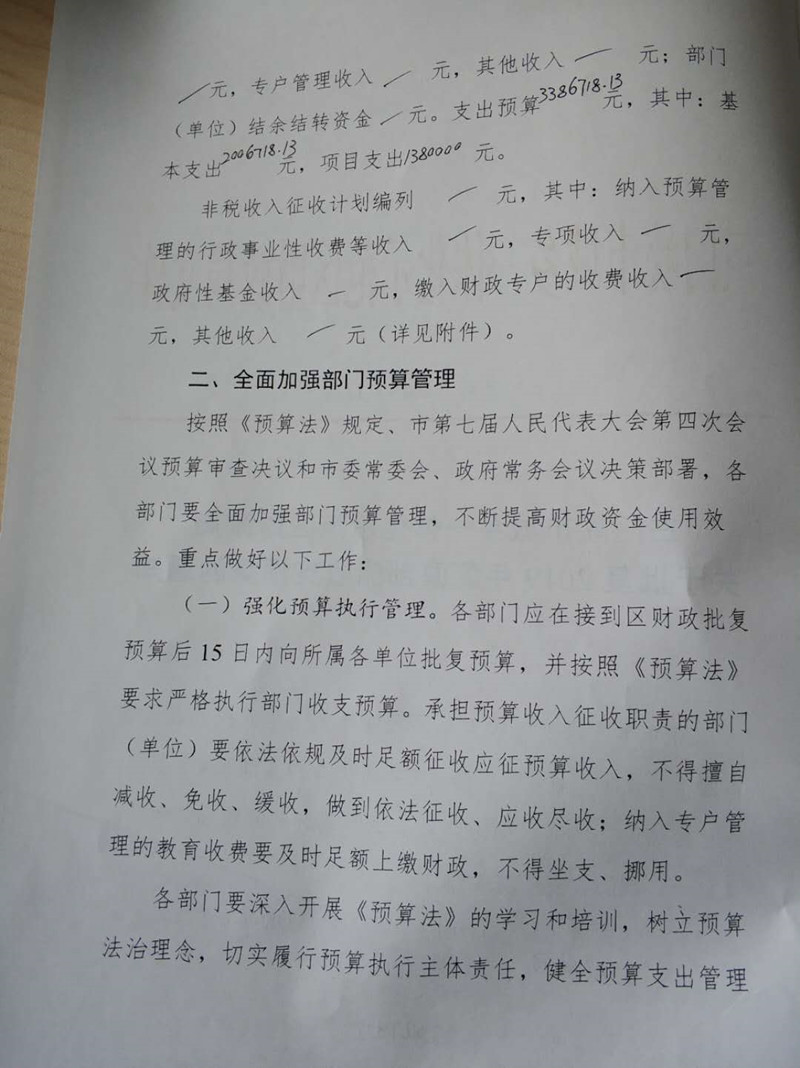 ／元，专户管理收入／元，其他收入／元；部门
（单位）结余结转资金／元。支出预算3386718.13元，其中：基
本支出2006718.13元，项目支出1380000元。
非税收入征收计划编列／元，其中：纳入预算管
理的行政事业性收费等收入／元，专项收入／元，
政府性基金收入／元，缴入财政专户的收费收入／
元，其他收入／元（详见附件）。
二、全面加强部门预算管理
按照《预算法》规定、市第七届人民代表大会第四次会
议预算审查决议和市委常委会、政府常务会议决策部署，各
部门要全面加强部门预算管理，不断提高财政资金使用效
益。重点做好以下工作：
（一）强化预算执行管理。各部门应在接到区财政批复
预算后15日内向所属各单位批复预算，并按照《预算法》
要求严格执行部门收支预算。承担预算收入征收职责的部门
（单位）要依法依规及时足额征收应征预算收入，不得擅自
减收、免收、缓收，做到依法征收、应收尽收；纳入专户管
理的教育收费要及时足额上缴财政，不得坐支、挪用。
各部门要深入开展《预算法》的学习和培训，树立预算
法治理念，切实履行预算执行主体责任，健全预算支出管理